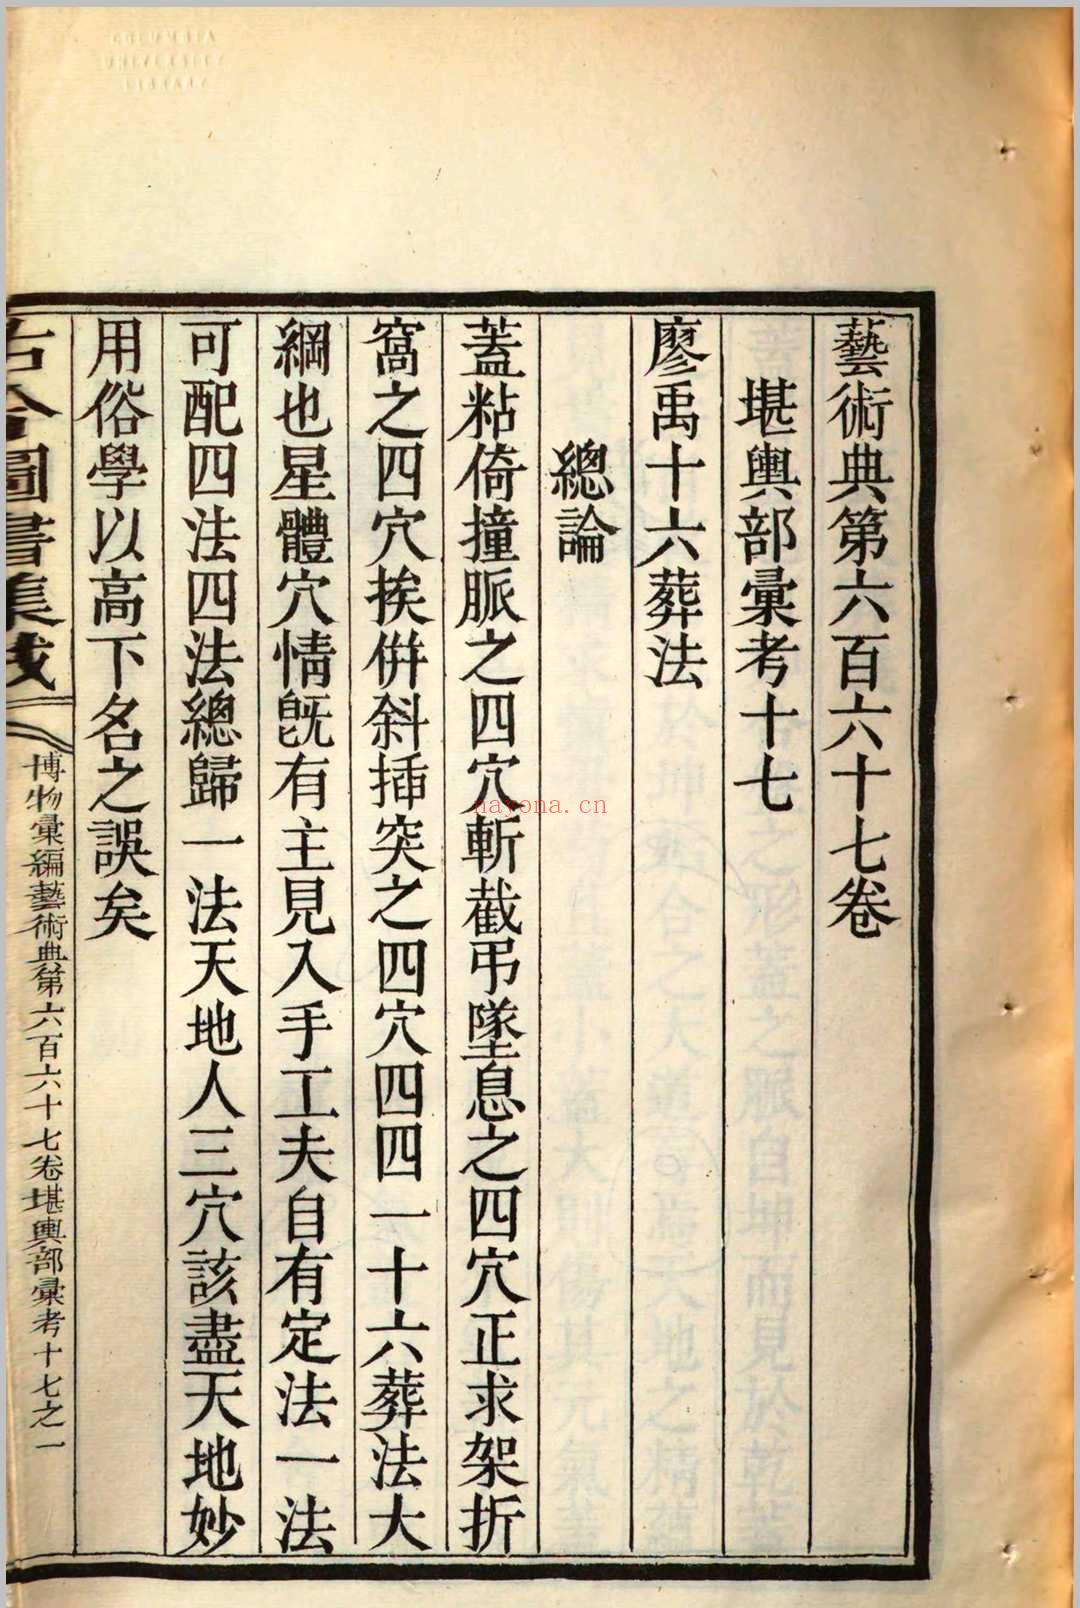 藝術典第六百六十七卷
堪輿部彙考十七
廖禹十六葬法
總論
蓋粘倚撞脈之四穴斬截弔墜息之四穴正求架折
窩之四穴挨倂斜揷突之四穴四四一十六葬法大
綱也星體穴情旣有主見入手工夫自有定法一法
可配四法四法總歸一法天地人三穴該盡天地妙
用俗學以高下名之誤矣
古今圖書集成
博物彙編藝術典第六百六十七卷堪輿部彙考十七之一
COLUMBIA
UNIVERSITY
LIBRARY
nayona.cn